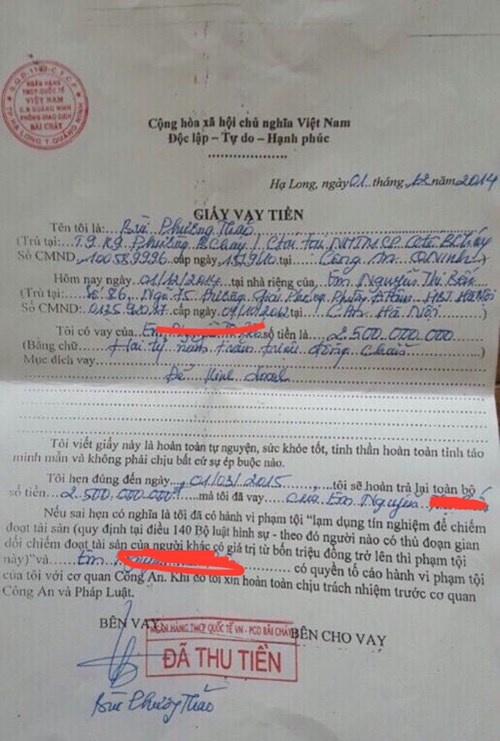 NGÂN HÀNG
TMCP QUỐC TẾ
VIỆT NAM
PHÒNG GIAO DỊCH
BÃI CHÁY
Cộng hòa xã hội chủ nghĩa Việt Nam
Độc lập – Tự do – Hạnh phúc
Hạ Long, ngày 01 tháng 12 năm 2014
GIẤY VAY TIỀN
Tên tôi là: Bùi Phương Thảo
(Trú tại: T.9 K9 Phường B.Cháy
Số CMND: cấp ngày tại: Công An Q.Ninh)
Hôm nay ngày 01/12/2014 tại nhà riêng của Em Nguyễn Thị
(Trú tại: Số 86, Hà Nội
Số CMND: cấp ngày tại: CA Hà Nội)
Tôi có vay của Em số tiền là 2.500.000.000
(Bằng chữ Hai tỷ năm trăm triệu đồng chẵn)
Mục đích vay
Để kinh doanh
Tôi viết giấy này là hoàn toàn tự nguyện, sức khỏe tốt, tinh thần hoàn toàn tỉnh táo
minh mẫn và không phải chịu bất cứ sự ép buộc nào.
Tôi hẹn đúng đến ngày 01/03/2015 tôi sẽ hoàn trả lại toàn bộ
số tiền 2.500.000.000 mà tôi đã vay của Em Nguyễn
Nếu sai hẹn có nghĩa là tôi đã có hành vi phạm tội "lạm dụng tín nghiệm để chiếm
đoạt tài sản (quy định tại điều 140 Bộ luật hình sự - theo đó người nào có thủ đoạn gian
dối chiếm đoạt tài sản của người khác có giá trị từ bốn triệu đồng trở lên thì phạm tội
này)" và Em có quyền tố cáo hành vi phạm tội
của tôi với cơ quan Công An. Khi đó tôi xin hoàn toàn chịu trách nhiệm trước cơ quan
Công An và Pháp Luật.
BÊN VAY BÊN CHO VAY
NGÂN HÀNG TMCP QUỐC TẾ VN - PGD BÃI CHÁY
ĐÃ THU TIỀN
Bùi Phương Thảo